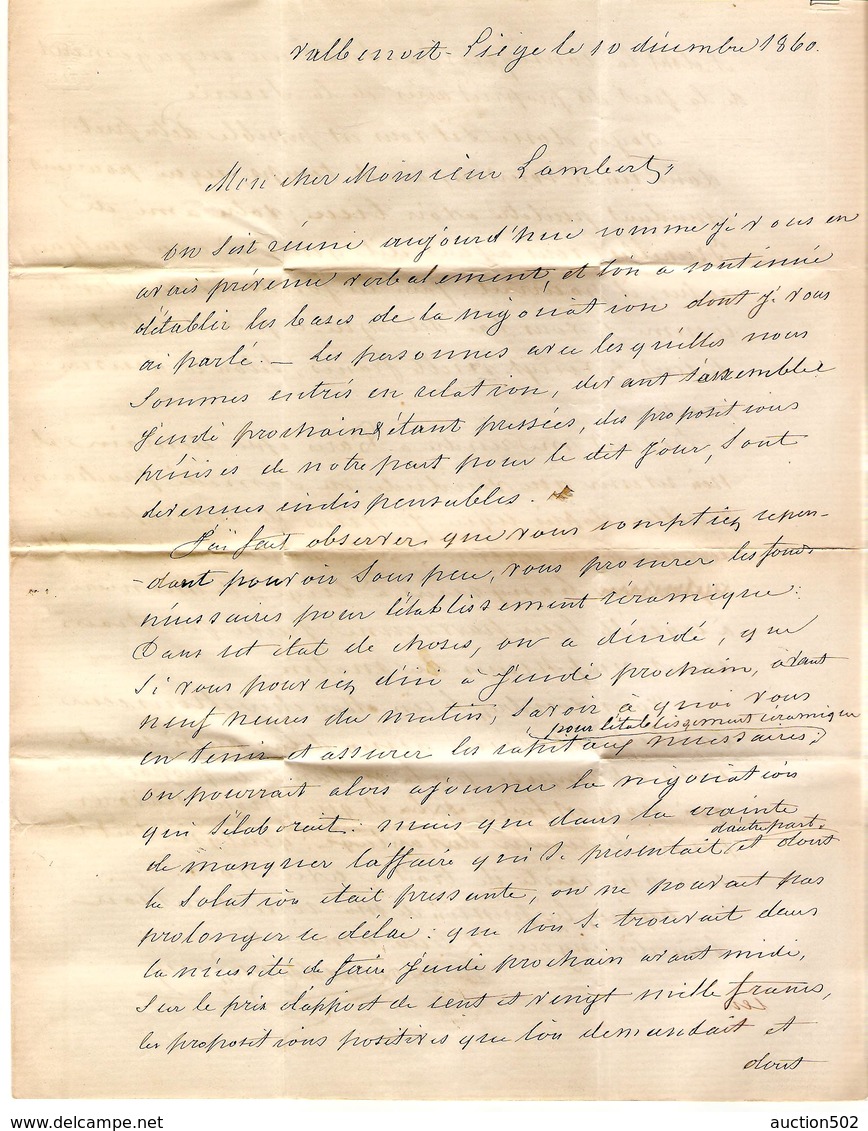 Valbenoit - Liége le 10 décembre 1860.
Mon cher Monsieur Lambert,
on s'est réuni aujourd'hui comme je vous en
avais prévenu verbalement, et l'on a continué
d'établir les bases de la négociation dont je vous
ai parlé. — Les personnes avec lesquelles nous
sommes entrés en relation, devant s'assembler
Jeudi prochain & étant pressées, des propositions
précises de notre part pour le dit jour, sont
devenues indispensables.
J'ai fait observer que vous comptiez cepen-
-dant pouvoir sous peu, vous procurer les fonds
nécessaires pour l'établissement céramique:
Dans cet état de choses, on a décidé, que
si vous pouviez d'ici à Jeudi prochain, avant
neuf heures du matin, savoir à quoi vous
pour l'établissement céramique
en tenir et assurer les capitaux nécessaires;
on pourrait alors ajourner la négociation
qui s'élaborait: mais que dans la crainte
d'autre part.
de manquer l'affaire qui se présentait et dont
la solution était pressante, on ne pouvait pas
prolonger ce délai: que l'on se trouvait dans
la nécessité de faire Jeudi prochain avant midi,
sur le prix d'apport de cent et vingt mille francs,
les propositions positives que l'on demandait et
dont
auction502